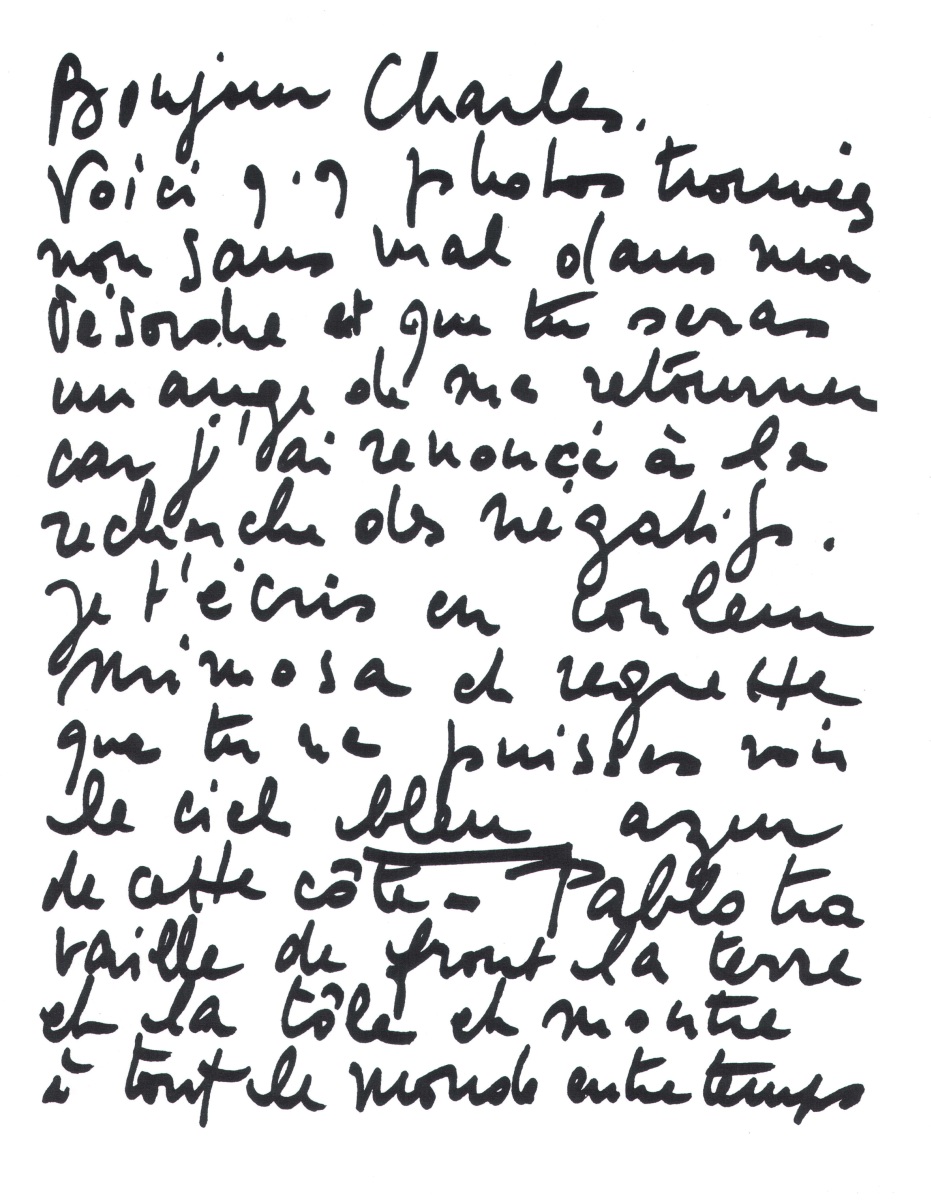 Bonjour Charles.
Voici q.q photos trouvées
non sans mal dans mon
désordre et que tu seras
un ange de me retourner
car j'ai renonçé à la
recherche des négatifs.
Je t'écris en couleur
mimosa et regrette
que tu ne puisses voir
le ciel bleu azur
de cette côte – Pablo tra
vaille de front la terre
et la tôle et montre
à tout le monde entre temps